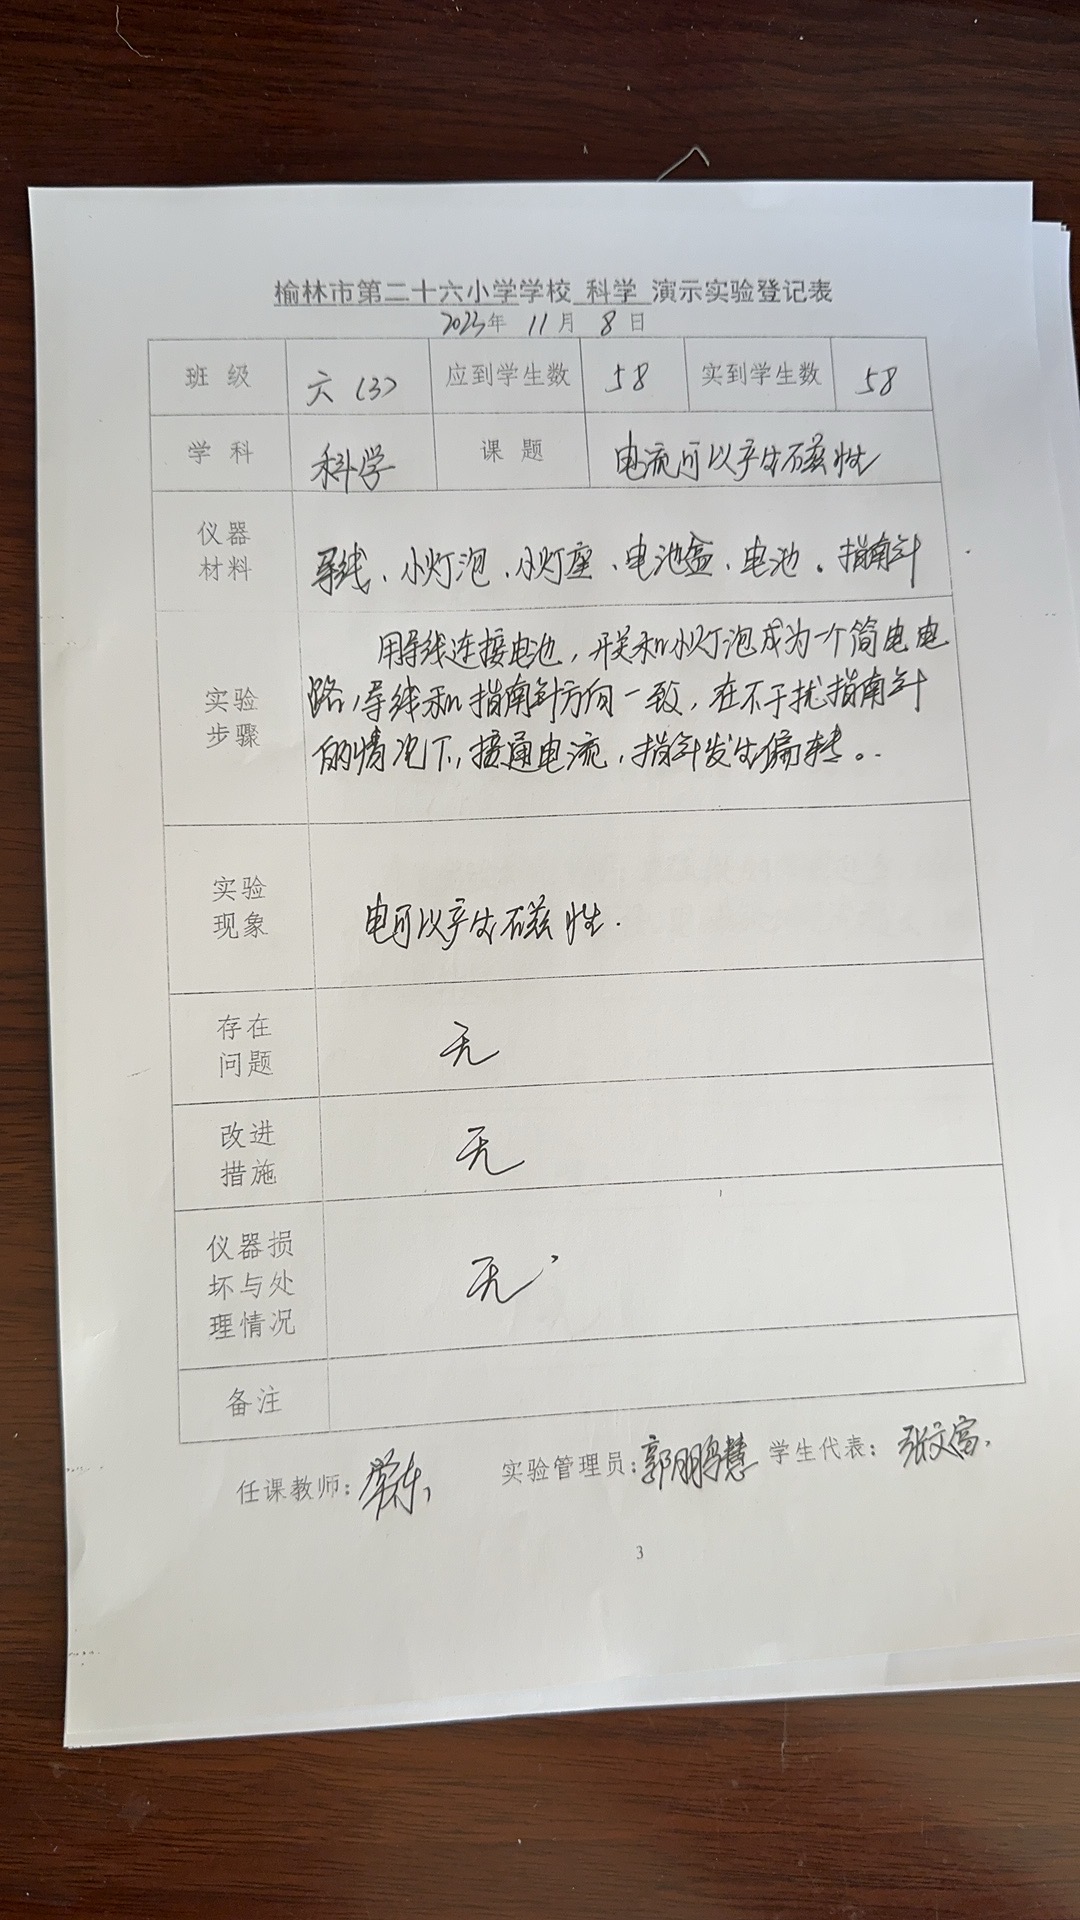 榆林市第二十六小学学校 科学 演示实验登记表
2023年 11月 8日
班 级 六（3） 应到学生数 58 实到学生数 58
学 科 科学 课 题 电流可以产生磁性
仪器
材料
导线、小灯泡、小灯座、电池盒、电池。指南针
实验
步骤
用导线连接电池，开关和小灯泡成为一个简电电
路，导线和指南针方向一致，在不干扰指南针
的情况下，接通电流，指针发生偏转。
实验
现象
电可以产生磁性.
存在
问题
无
改进
措施
无
仪器损
坏与处
理情况
无
备注
任课教师： 实验管理员：郭鹏慧 学生代表：张文富
3